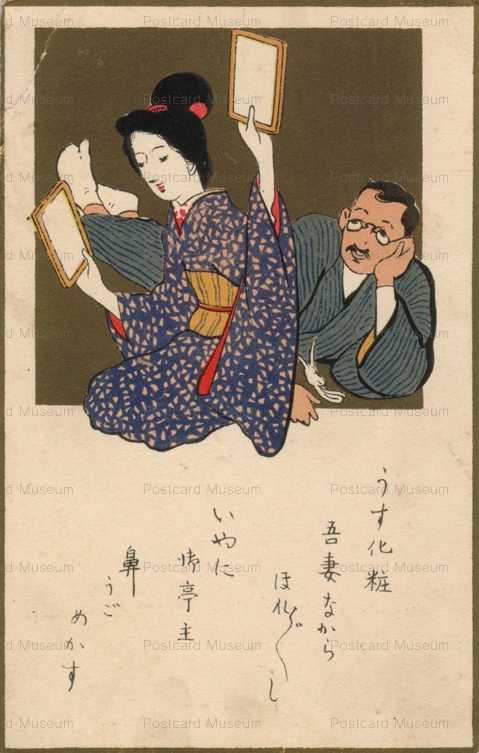 うす化粧
吾妻ながら
ほれ〴〵し
いやに
亭主
鼻
うご
めかす
Postcard Museum